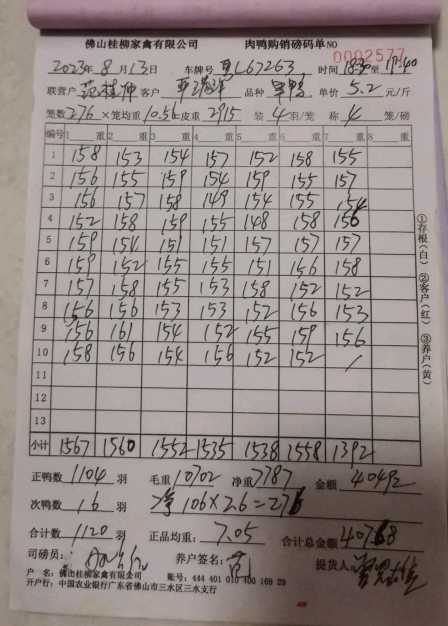 佛山桂柳家禽有限公司 肉鸭购销磅码单 NO 0002577
2023年8月13日 车牌号 粤L67263 时间 18:30至 19:40
联营户 客户 品种 单价 5.2 元/斤
笼数 276 ×笼均重 10.56 皮重 2915 装 4 羽/笼 称 4 笼/磅
编号 1 重 2 重 3 重 4 重 5 重 6 重 7 重 8 重
1 158 153 154 157 152 158 155
2 156 155 159 154 159 155 157
3 156 157 158 149 154 155 154
4 152 158 159 155 148 158 156
5 159 154 151 151 157 157 157
6 159 152 155 155 151 156 158
7 157 158 155 153 158 152 152
8 156 156 153 153 152 156 153
9 156 161 154 152 155 159 156
10 158 156 154 156 152 152 /
11
12
13
小计 1567 1560 1552 1535 1538 1558 1392
正鸭数 1104 羽 毛重 10702 净重 7787 金额 40492
次鸭数 16 羽 106×2.6=276
合计数 1120 羽 正品均重: 7.05 合计总金额 40768
司磅员: 养户签名: 提货人:
户 名: 佛山桂柳家禽有限公司 账号: 444 401 010 400 169 29
开户行: 中国农业银行广东省佛山市三水区三水支行
①存根(白) ②客户(红) ③养户(黄)